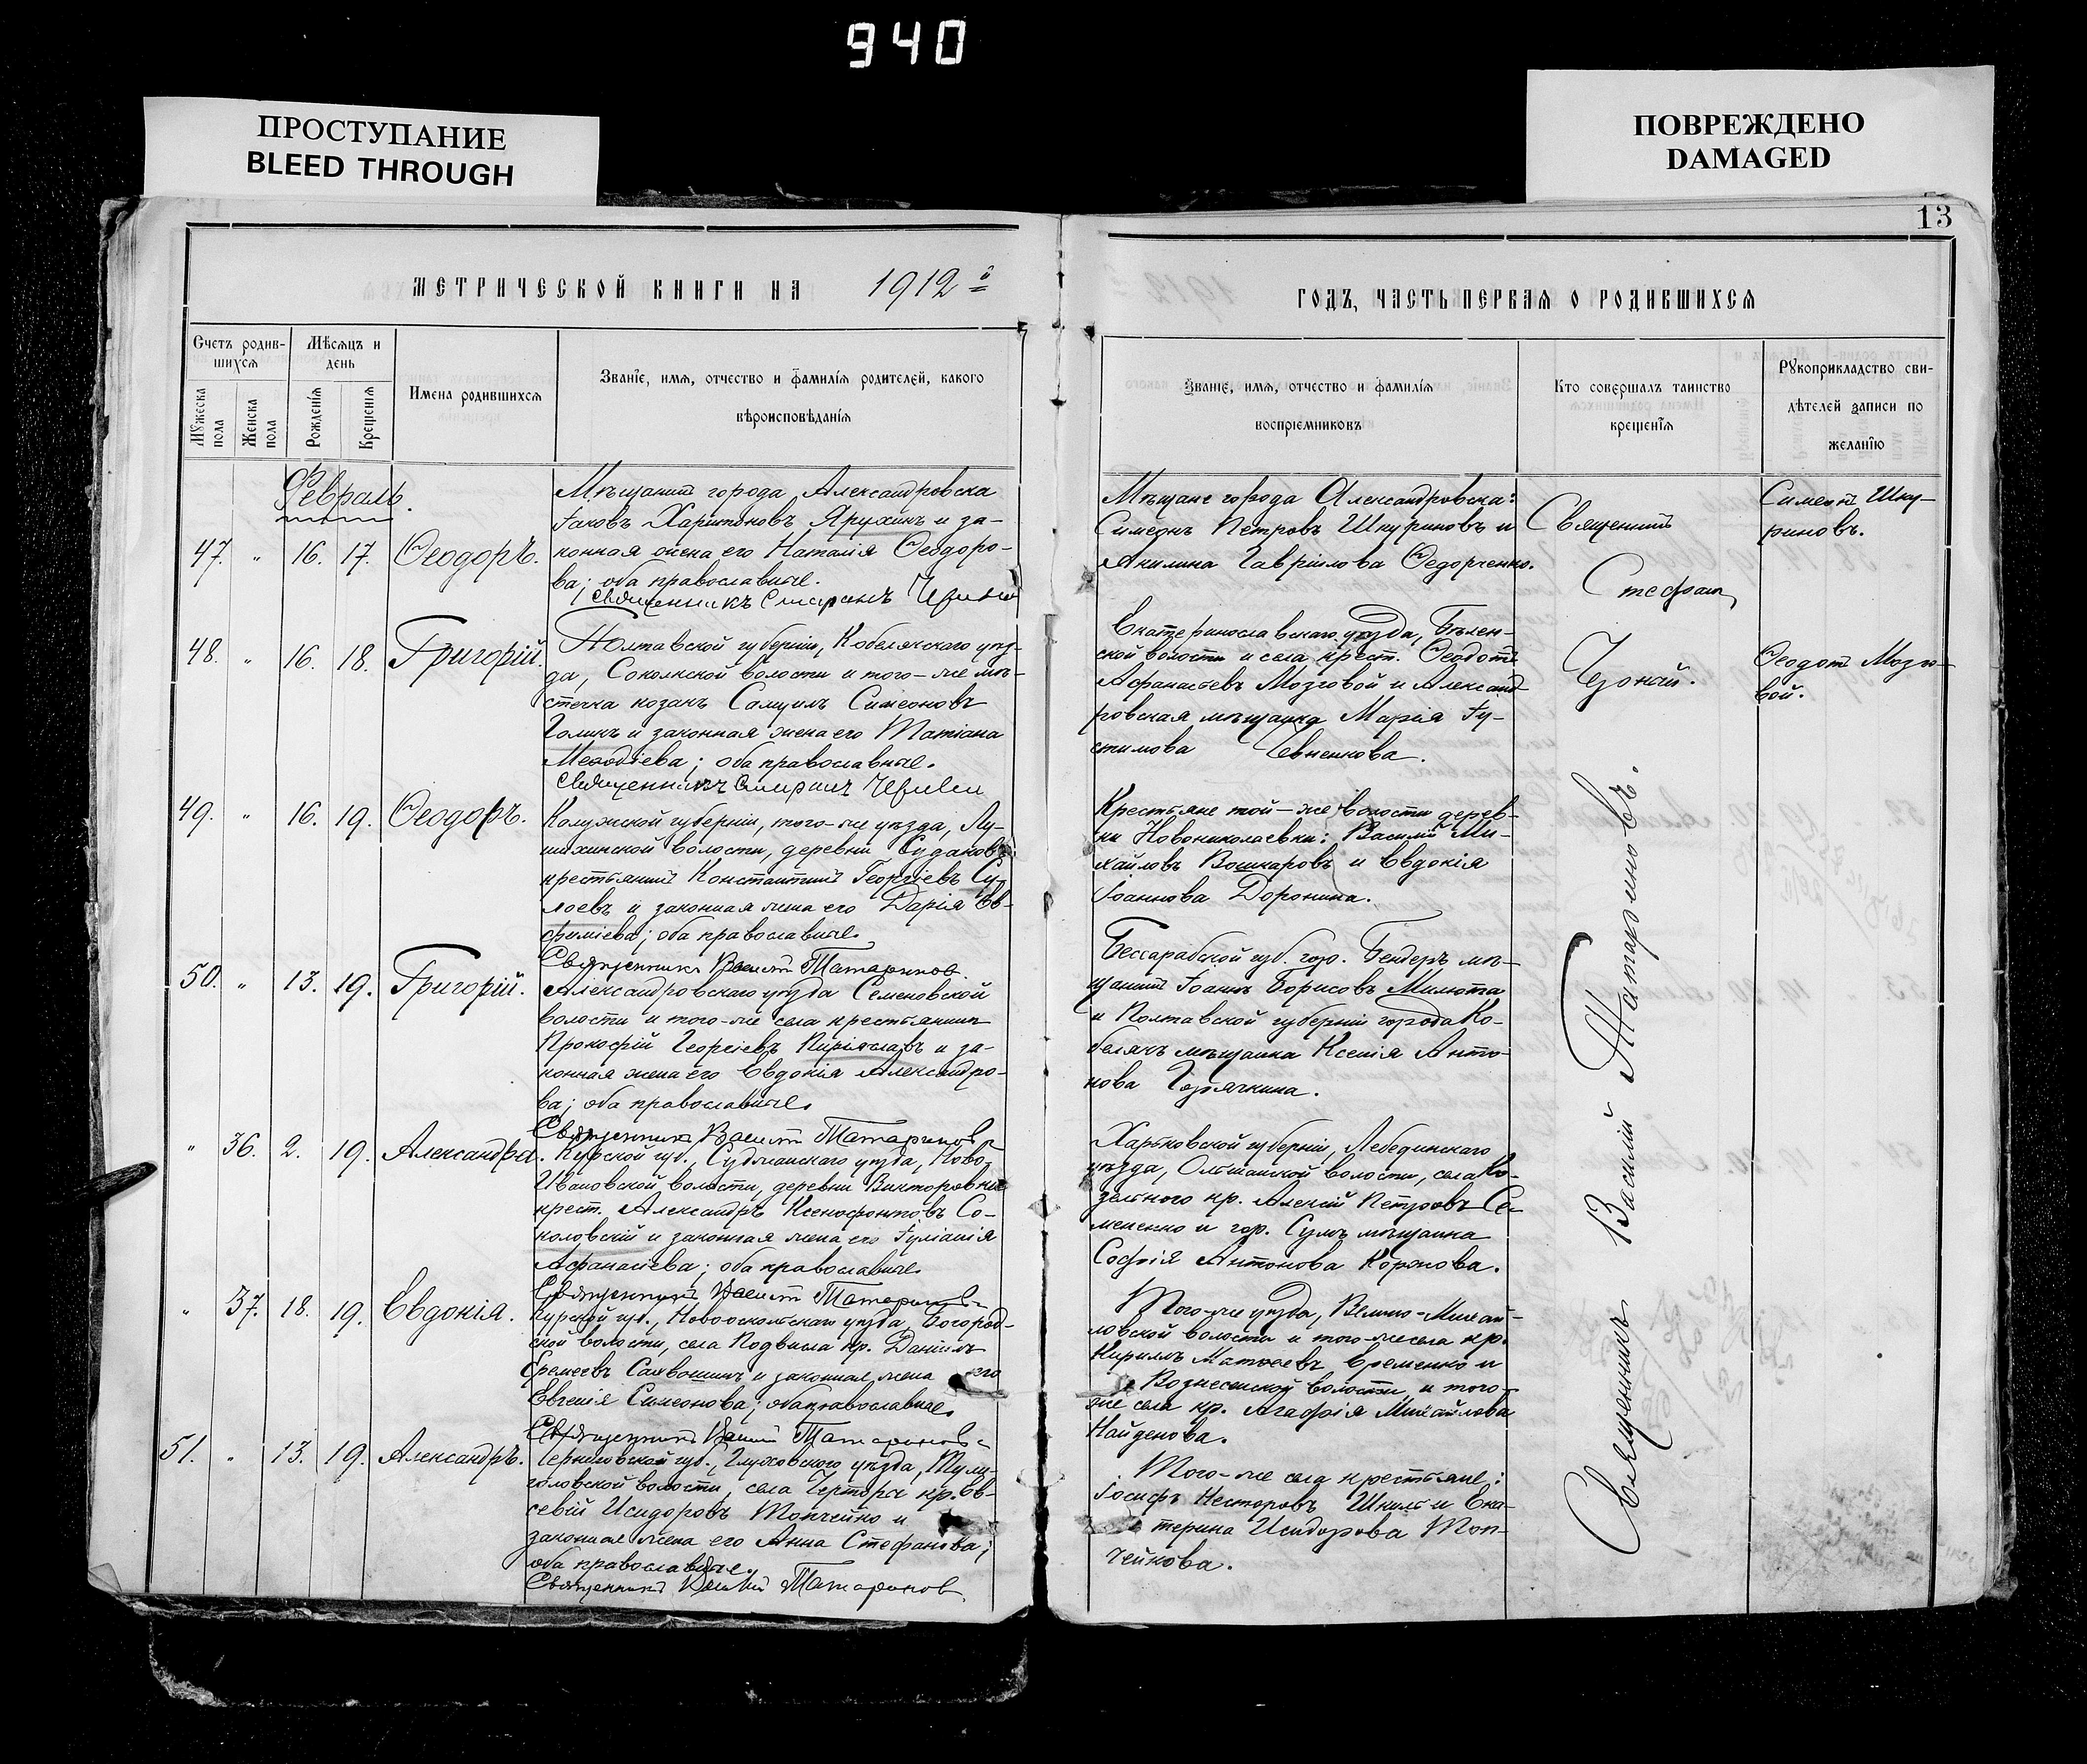 940
ПРОСТУПАНИЕ
BLEED THROUGH
ПОВРЕЖДЕНО
DAMAGED
13
МЕТРИЧЕСКОЙ КНИГИ НА 1912й
ГОДЪ, ЧАСТЬ ПЕРВАЯ О РОДИВШИХСЯ
Счетъ родив-
шихся
Мѣсяцъ и
день
Мужеска
пола
Женска
пола
Рожденія
Крещенія
Имена родившихся
Званіе, имя, отчество и фамилія родителей, какого
вѣроисповѣданія
Званіе, имя, отчество и фамилія
воспріемниковъ
Кто совершалъ таинство
крещенія
Рукоприкладство сви-
дѣтелей записи по
желанію
Февраль.
47. " 16. 17. Ѳеодоръ.
Мѣщанинъ города Александровска
Іаковъ Харитоновъ Яружинъ и за-
конная жена его Наталія Ѳеодоро-
ва; оба православные.
Священникъ
Мѣщане города Александровска:
Симеонъ Петровъ Шкуриновъ и
Акилина Гавріилова Ѳедорченко.
Симеонъ Шку-
риновъ.
48. " 16. 18. Григорій.
Полтавской губерніи, Кобелякскаго уѣз-
да, Соколкской волости и того-же мѣ-
стечка козакъ Самуилъ Симеоновъ
Голикъ и законная жена его Татіана
Меѳодіева; оба православные.
Священникъ
Екатеринославскаго уѣзда, Бѣлен-
ской волости и села крест. Ѳеодотъ
Аѳанасьевъ Мозговой и Александ-
ровская мѣщанка Марія Іу-
стинова
Ѳеодотъ Мозго-
вой.
49. " 16. 19. Ѳеодоръ.
Калужской губерніи, того-же уѣзда,
волости, деревни
крестьянинъ Константинъ Георгіевъ Су-
ловъ и законная жена его Дарія Ев-
фиміева; оба православные.
Священникъ Василій Татариновъ.
Крестьяне той-же волости дерев-
ни Новониколаевки: Василій Ми-
хайловъ Вошкаровъ и Евдокія
Іоаннова Доронина.
50. " 13. 19. Григорій.
Александровскаго уѣзда Семеновской
волости и того-же села крестьянинъ
Прокофій Георгіевъ и за-
конная жена его Евдокія Александро-
ва; оба православные.
Священникъ Василій Татариновъ
Бессарабской губ. гор. Бендеръ мѣ-
щанинъ Іоаннъ Борисовъ Милюта
и Полтавской губерніи города Ко-
белякъ мѣщанка Ксенія Анто-
нова Горячкина.
" 36. 2. 19. Александра.
Курской губ., Суджанскаго уѣзда, Ново-
Ивановской волости, деревни Викторовки
крест. Александръ Ксенофонтовъ Со-
коловскій и законная жена его Іуліанія
Аѳанасіева; оба православные.
Священникъ Василій Татариновъ
Харьковской губерніи, Лебединскаго
уѣзда, Ольшанской волости, села Ко-
зельного кр. Алексій Петровъ Се-
мененко и гор. Сумъ мѣщанка
Софія Антонова Коржова.
" 37. 18. 19. Евдокія.
Курской губ., Новооскольскаго уѣзда, Богород-
ской волости, села Подвисла кр. Даніилъ
Еремеевъ и законная жена его
Евгенія Симеонова; оба православные.
Священникъ Василій Татариновъ
Того-же уѣзда, Велико-Михай-
ловской волости и того-же села кр.
Кириллъ Матвеевъ Еременко и
Вознесенской волости и того-
же села кр. Агафія Михайлова
Найденова.
51. " 13. 19. Александръ.
Черниговской губ., Глуховского уѣзда, Тули-
головской волости, села кр. Ев-
севій Исидоровъ Топчейко и
законная жена его Анна Стефанова;
оба православные.
Священникъ Василій Татариновъ
Того-же села крестьяне:
Іосифъ Несторовъ Шкиль и Ека-
терина Исидорова Топ-
чейкова.
Священникъ
Стефанъ
Священникъ Василій Татариновъ.